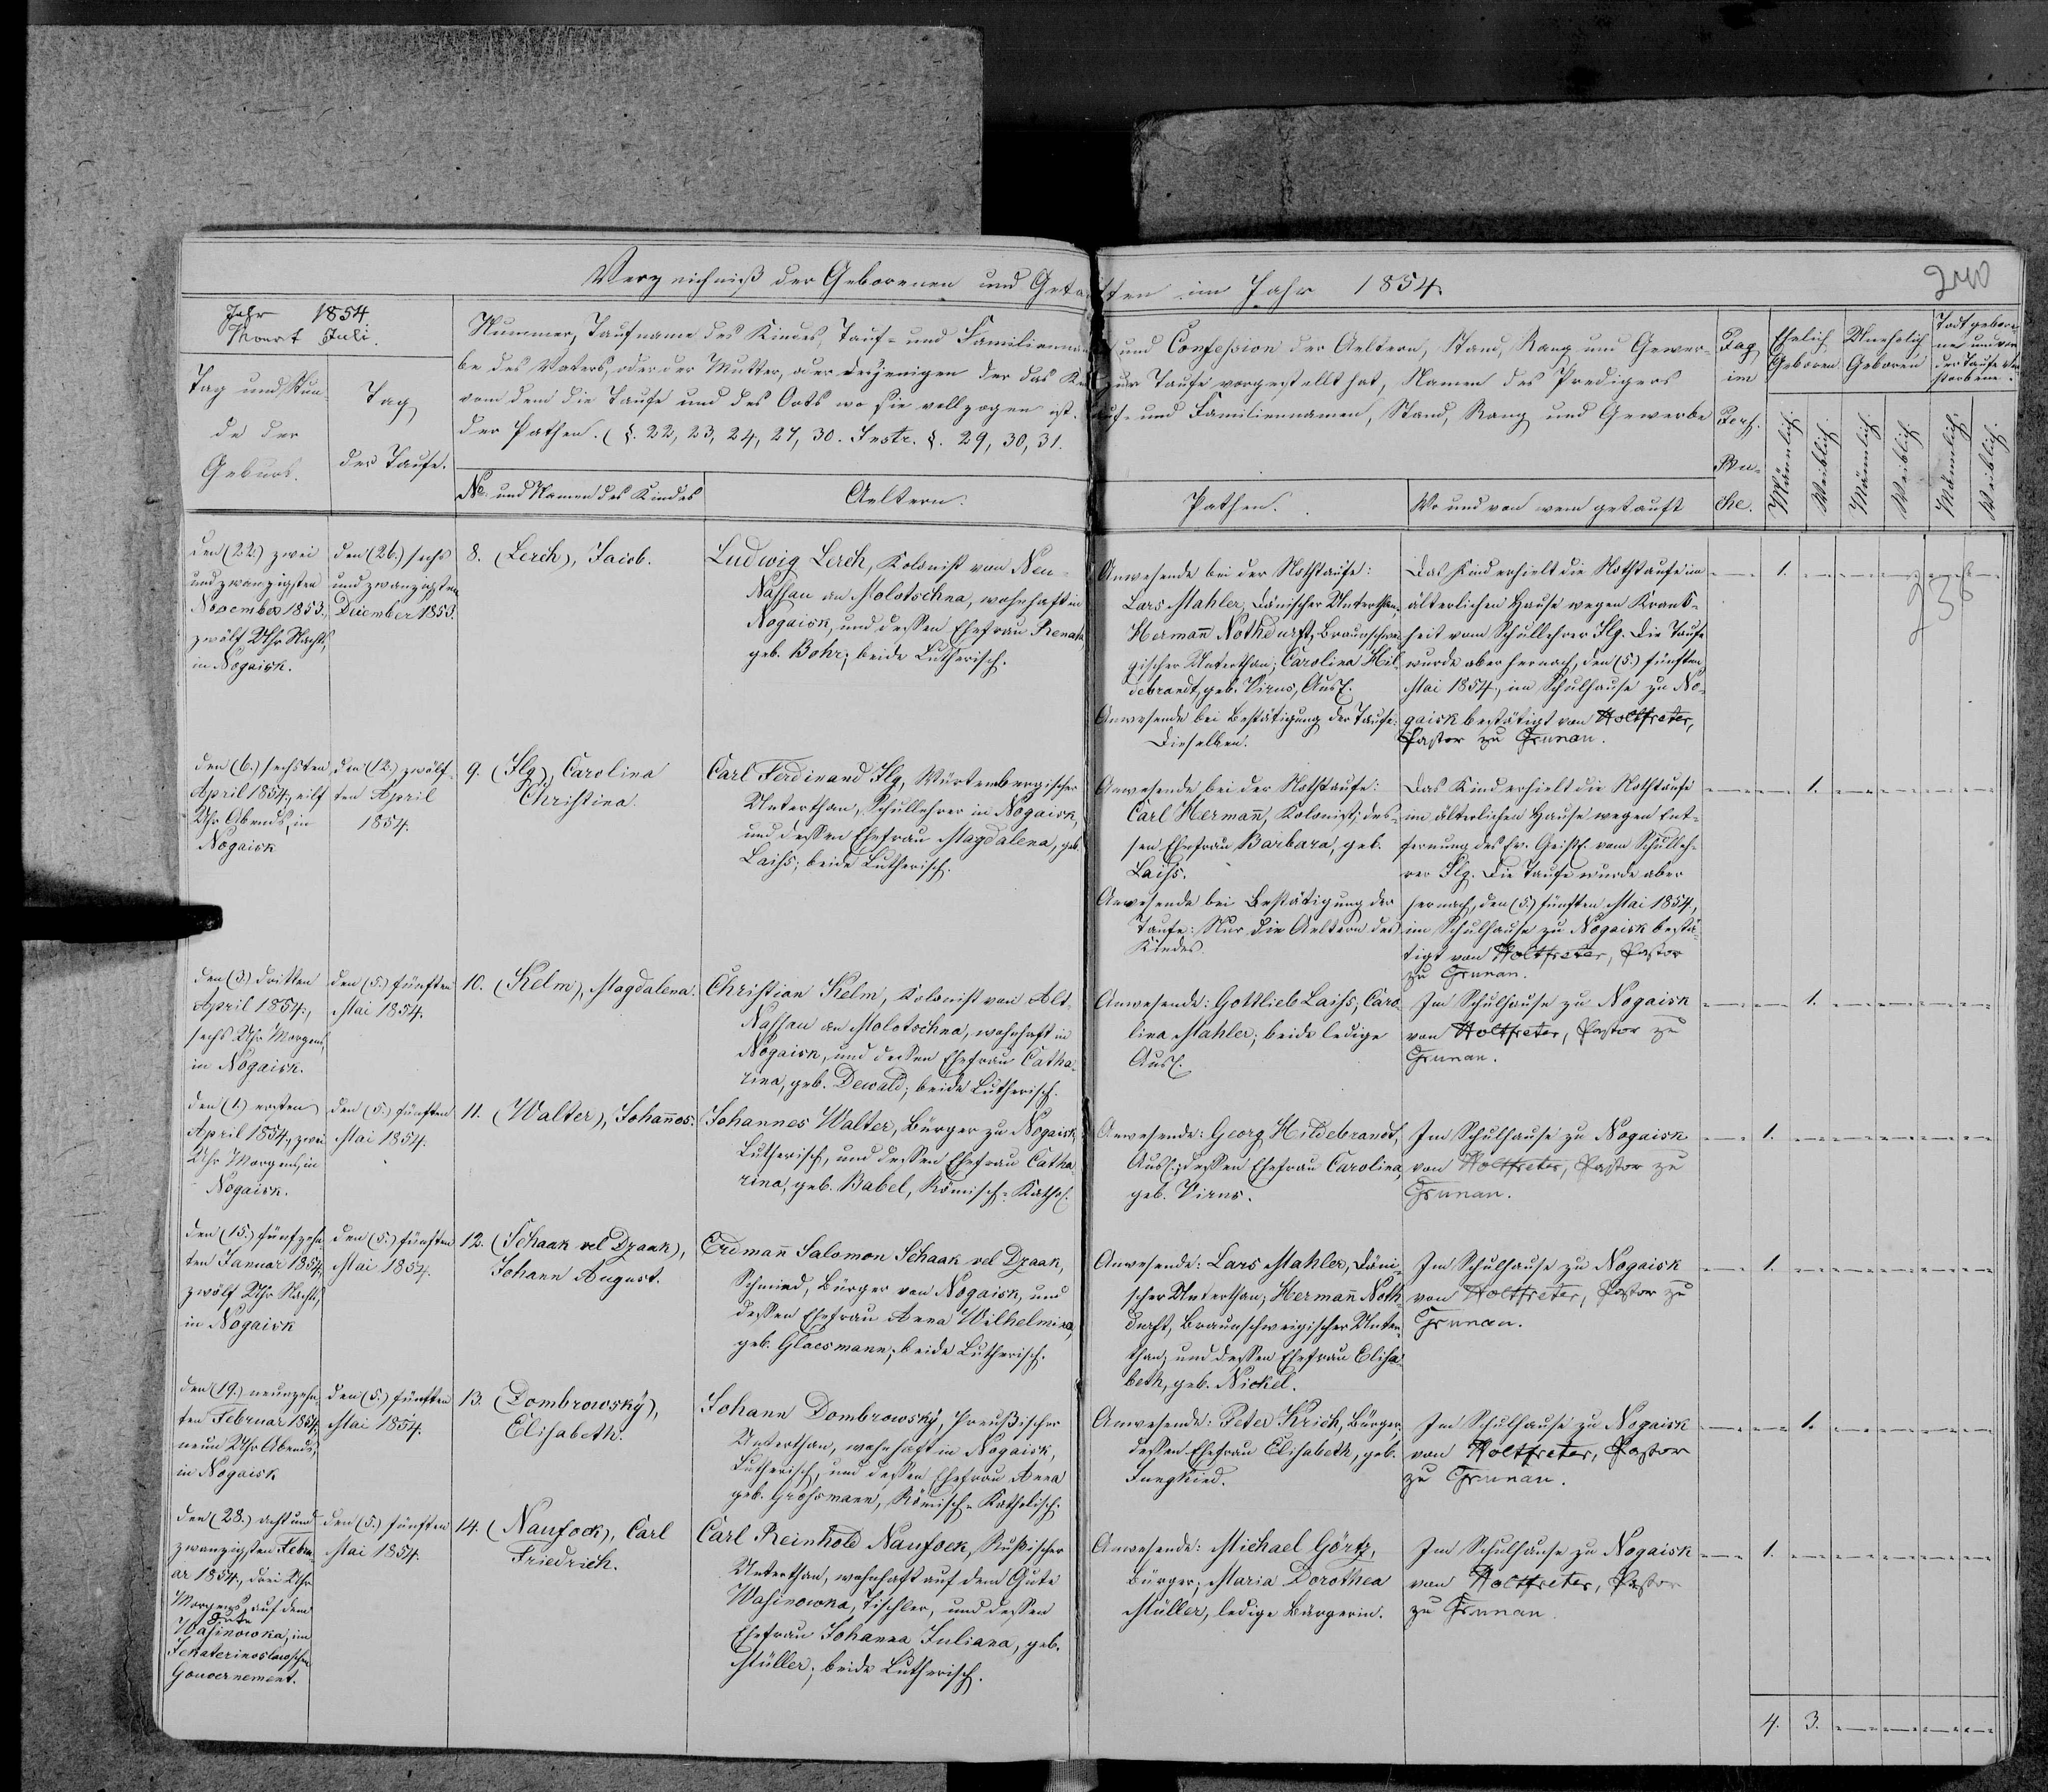 Verzeichniß der Geborenen und Getauften im Jahr 1854.
240
Jahr 1854
Monat Juli.
Tag und Stun-
de der
Geburt.
Tag
der Taufe.
Nummer, Taufname des Kindes, Tauf- und Familienna und Confession der Aeltern, Stand, Rang und Gewer-
be des Vaters, oder der Mutter, oder desjenigen der das Ki zur Taufe vorgestellt hat, Namen des Predigers
von dem die Taufe und des Orts wo sie vollzogen ist. Tauf- und Familiennamen, Stand, Rang und Gewerbe
der Pathen. (§. 22, 23, 24, 27, 30. Instr. §. 29, 30, 31.
No. und Namen des Kindes
Aeltern.
Pathen.
Wo und von wem getauft
Tag
im
Pers.
Bu-
che.
Ehelich
Geboren
Unehelich
Geboren
Todtgebore-
ne und vor
der Taufe Ver-
storbene.
Männlich.
Weiblich.
Männlich.
Weiblich.
Männlich.
Weiblich.
den (22.) zwei
und zwanzigsten
November 1853.,
zwölf Uhr Nachts,
in Nogaisk.
den (26.) sechs
und zwanzigsten
December 1853.
8. (Lerch), Jacob.
Ludwig Lerch, Kolonist von Neu-
Nassau an Molotschna, wohnhaft in
Nogaisk, und dessen Ehefrau Renata,
geb. Bohr; beide Lutherisch.
Anwesende bei der Nothtaufe:
Lars Mahler, Dänischer Unterthan;
Hermañ Nothdurft, Braunschwei-
gischer Unterthan; Carolina Hil-
debrandt, geb. Virus, Ausl.
Anwesende bei Bestätigung der Taufe:
Dieselben.
Das Kind erhielt die Nothtaufe im
älterlichen Hause wegen Krank-
heit vom Schullehrer Ilg. Die Taufe
wurde aber hernach, den (5.) fünften
Mai 1854., im Schulhause zu No-
gaisk bestätigt von Holtfreter,
Pastor zu Grunau.
1.
238
den (6.) sechsten
April 1854., eilf
Uhr Abends, in
Nogaisk
den (12.) zwölf-
ten April
1854.
9. (Ilg), Carolina
Christina.
Carl Ferdinand Ilg, Würtembergischer
Unterthan, Schullehrer in Nogaisk,
und dessen Ehefrau Magdalena, geb.
Laiss; beide Lutherisch.
Anwesende bei der Nothtaufe:
Carl Hermañ, Kolonist; des-
sen Ehefrau Barbara, geb.
Laiss.
Anwesende bei Bestätigung der
Taufe: Nur die Aeltern des
Kindes.
Das Kind erhielt die Nothtaufe
im älterlichen Hause wegen Ent-
fernung des Ev. Geistl. vom Schulleh-
rer Ilg. Die Taufe wurde aber
hernach, den (5.) fünften Mai 1854.,
im Schulhause zu Nogaisk bestä-
tigt von Holtfreter, Pastor
zu Grunau.
1.
den (3.) dritten
April 1854.,
sechs Uhr Morgens,
in Nogaisk.
den (5.) fünften
Mai 1854.
10. (Kelm), Magdalena.
Christian Kelm, Kolonist von Alt-
Nassau an Molotschna, wohnhaft in
Nogaisk, und dessen Ehefrau Catha-
rina, geb. Dewald; beide Lutherisch.
Anwesende: Gottlieb Laiss, Caro-
lina Mahler; beide ledige
Ausl.
Im Schulhause zu Nogaisk
von Holtfreter, Pastor zu
Grunau.
1.
den (1.) ersten
April 1854., zwei
Uhr Morgens, in
Nogaisk.
den (5.) fünften
Mai 1854.
11. (Walter), Johañes.
Johannes Walter, Bürger zu Nogaisk,
Lutherisch, und dessen Ehefrau Catha-
rina, geb. Babel, Römisch-Kathol.
Anwesende: Georg Hildebrandt,
Ausl.; dessen Ehefrau Carolina,
geb. Virus.
Im Schulhause zu Nogaisk
von Holtfreter, Pastor zu
Grunau.
1.
den (15.) fünfzehn-
ten Januar 1854.,
zwölf Uhr Nachts,
in Nogaisk
den (5.) fünften
Mai 1854.
12. (Schaak vel Dzaak),
Johann August.
Erdmañ Salomon Schaak vel Dzaak,
Schmied, Bürger von Nogaisk, und
dessen Ehefrau Anna Wilhelmina,
geb. Glaesmann; beide Lutherisch.
Anwesende: Lars Mahler, Däni-
scher Unterthan; Hermañ Noth-
durft, Braunschweigischer Unter-
than, und dessen Ehefrau Elisa-
beth, geb. Nickel.
Im Schulhause zu Nogaisk
von Holtfreter, Pastor zu
Grunau.
1.
den (19.) neunzehn-
ten Februar 1854.,
neun Uhr Abends,
in Nogaisk
den (5.) fünften
Mai 1854.
13. (Dombrowsky),
Elisabeth.
Johann Dombrowsky, Preußischer
Unterthan, wohnhaft in Nogaisk,
Lutherisch, und dessen Ehefrau Anna
geb. Grossmann, Römisch-Katholisch.
Anwesende: Peter Krich, Bürger,
dessen Ehefrau Elisabeth, geb.
Jungkied.
Im Schulhause zu Nogaisk
von Holtfreter, Pastor
zu Grunau.
1.
den (28.) acht und
zwanzigsten Febru-
ar 1854., drei Uhr
Morgens, auf dem
Gute
Wasinowka, im
Jekaterinoslawschen
Gouvernement.
den (5.) fünften
Mai 1854.
14. (Naufock), Carl
Friedrich.
Carl Reinhold Naufock, Russischer
Unterthan, wohnhaft auf dem Gute
Wasinowka, Tischler, und dessen
Ehefrau Johanna Juliana, geb.
Müller; beide Lutherisch.
Anwesende: Michael Görtz,
Bürger; Maria Dorothea
Müller, ledige Bürgerin.
Im Schulhause zu Nogaisk
von Holtfreter, Pastor
zu Grunau.
1.
4. 3.